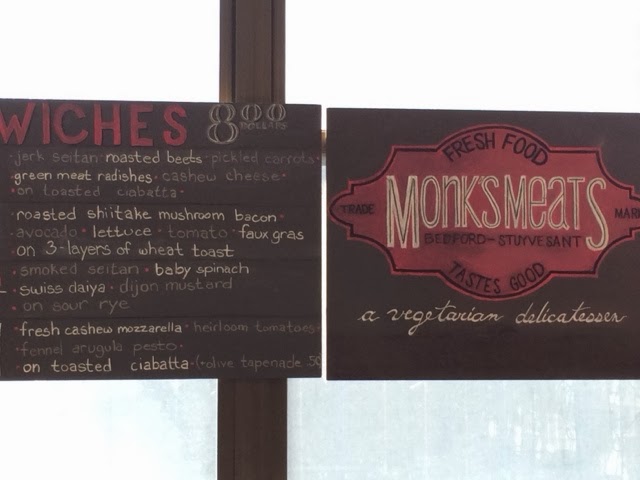 WICHES 8⁰⁰
DOLLARS
· jerk seitan · roasted beets · pickled carrots ·
green meat radishes · cashew cheese ·
· on toasted ciabatta ·
roasted shiitake mushroom bacon ·
· avocado · lettuce · tomato · faux gras
on 3-layers of wheat toast
· smoked seitan · baby spinach
· swiss daiya · dijon mustard
· on sour rye
· fresh cashew mozzarella · heirloom tomatoes ·
· fennel arugula pesto ·
on toasted ciabatta · (+olive tapenade 50
FRESH FOOD
TRADE MARK
MONK'S MEATS
BEDFORD-STUYVESANT
TASTES GOOD
a vegetarian delicatessen